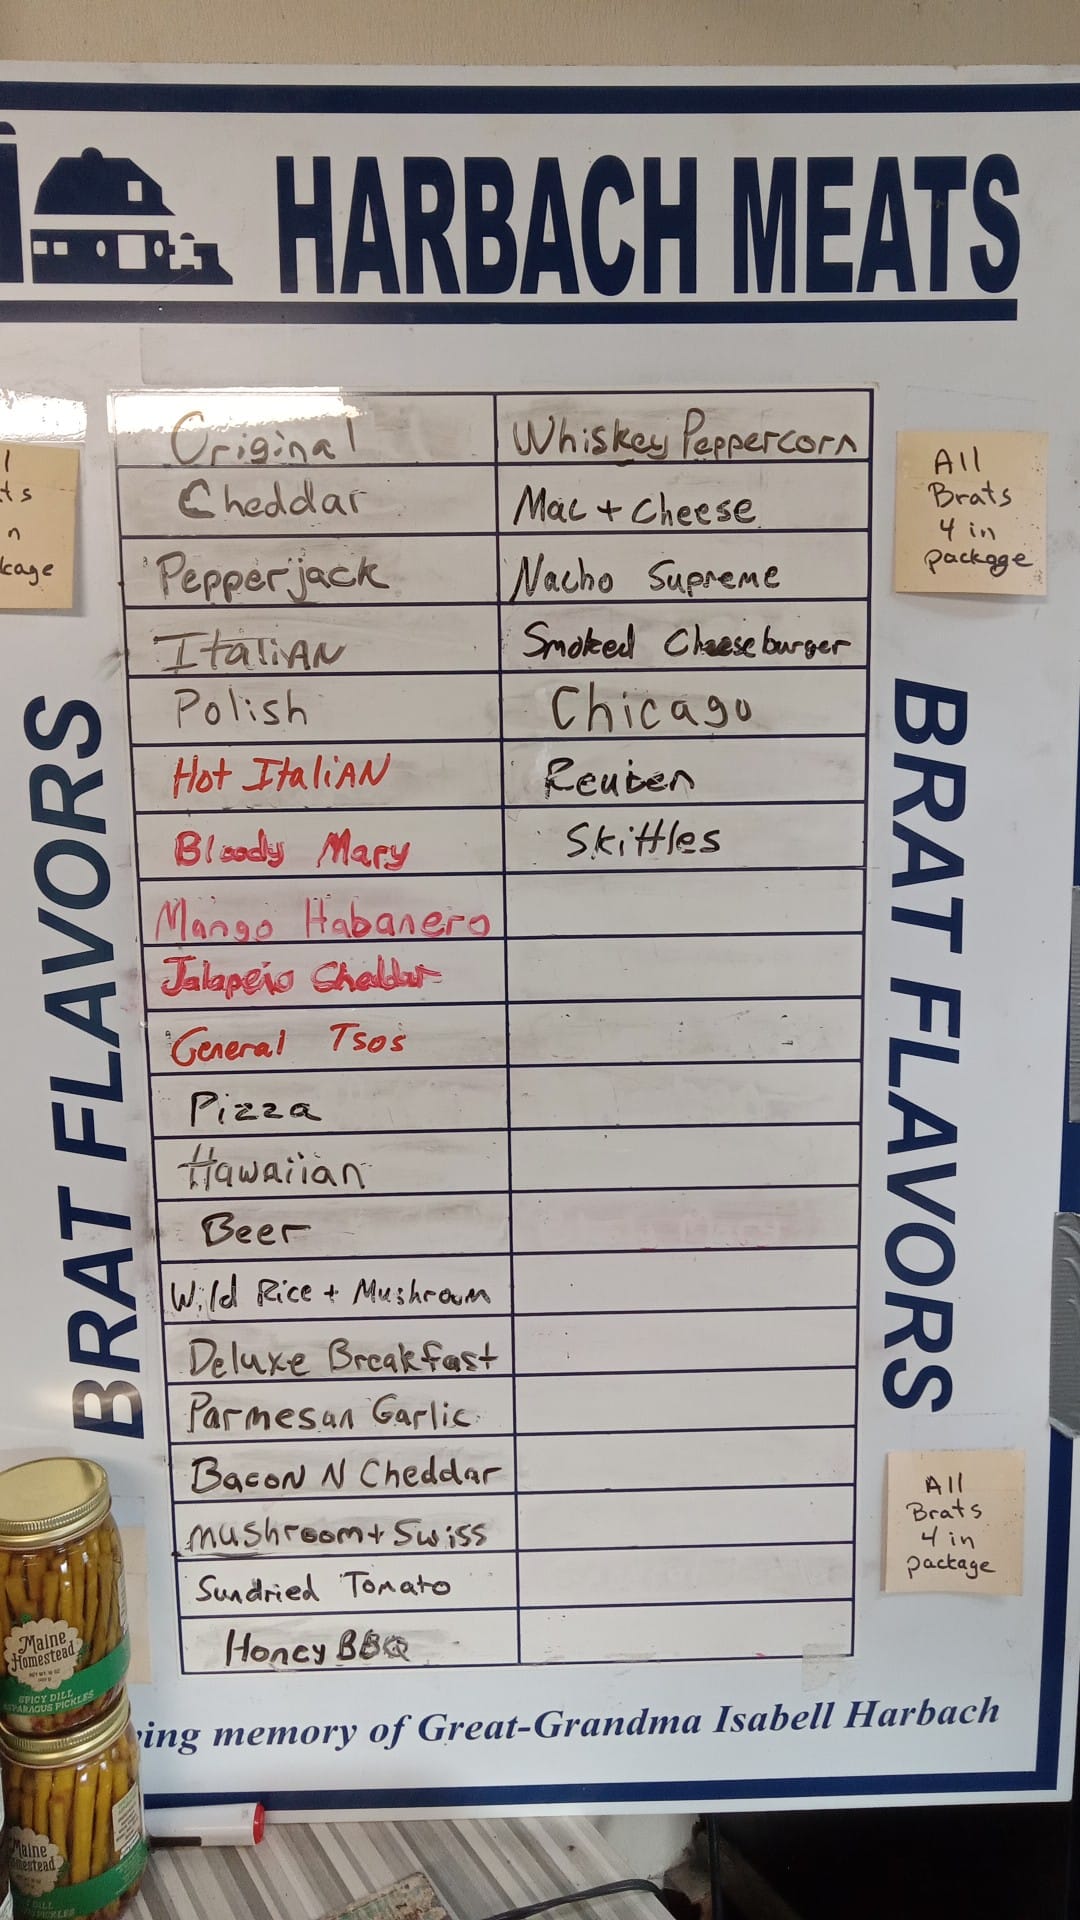 HARBACH MEATS
Original
Cheddar
Pepperjack
ItaliAN
Polish
Hot ItaliAN
Bloody Mary
Mango Habanero
Jalapeño Cheddar
General Tsos
Pizza
Hawaiian
Beer
Wild Rice + Mushroom
Deluxe Breakfast
Parmesan Garlic
BacoN N Cheddar
mushroom + Swiss
Sundried Tomato
Honey BBQ
Whiskey Peppercorn
Mac + Cheese
Nacho Supreme
Smoked Cheeseburger
Chicago
Reuben
Skittles
BRAT FLAVORS
BRAT FLAVORS
All
Brats
4 in
package
All
Brats
4 in
package
memory of Great-Grandma Isabell Harbach
Maine
Homestead
SPICY DILL
ASPARAGUS PICKLES
Maine
Homestead